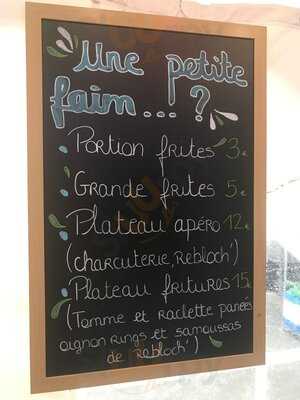 Une petite
faim... ?
Portion frites 3€
Grande frites 5€
Plateau apéro 12€
(charcuterie, Rebloch')
Plateau fritures 15€
(Tomme et raclette panées
oignon rings et samoussas
de Rebloch')